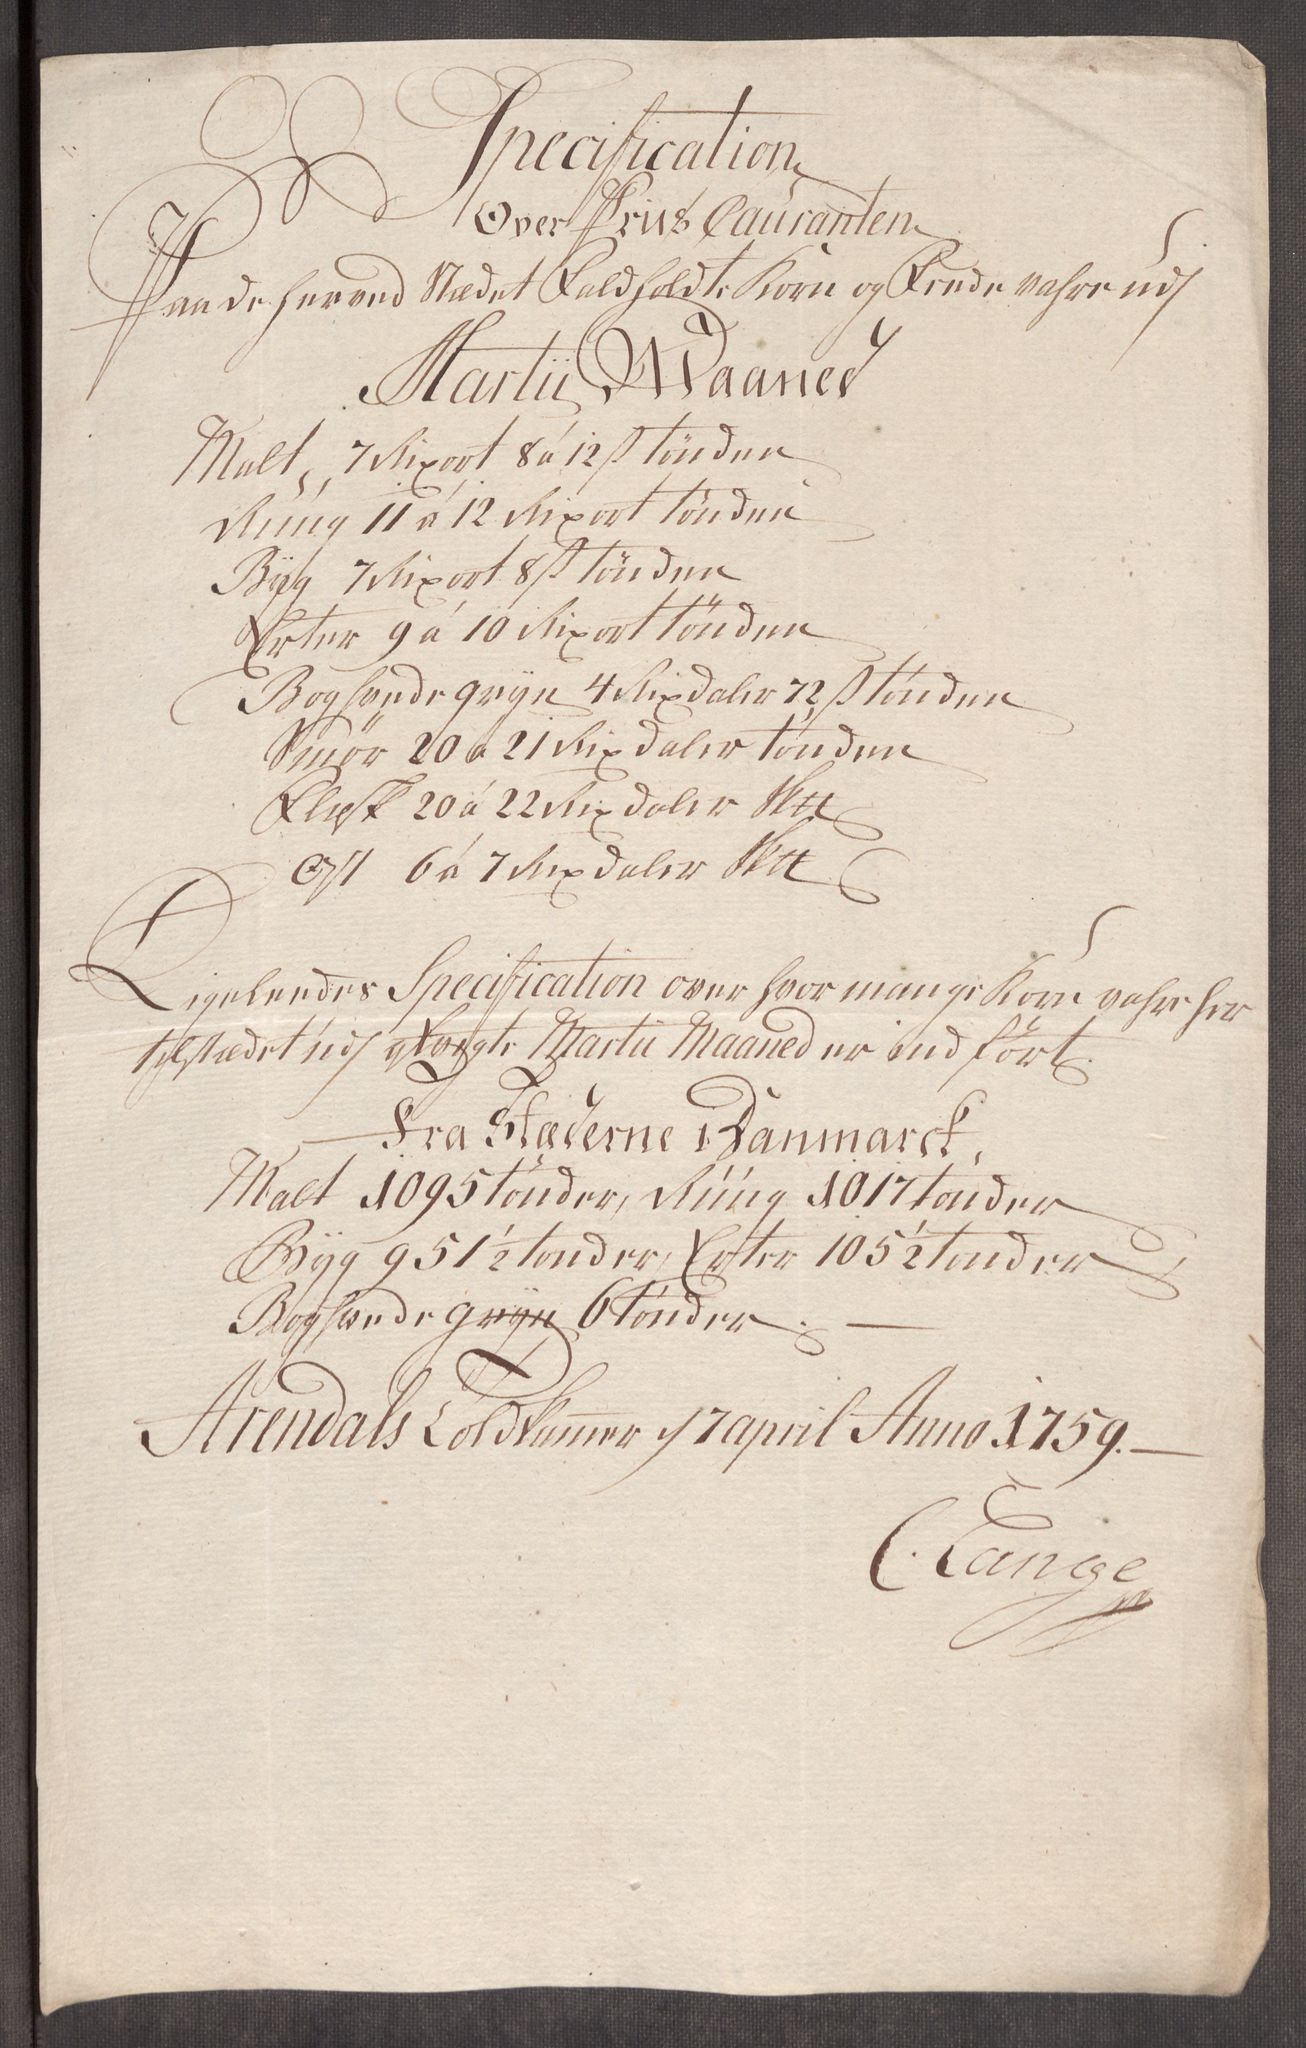 Specification
Over Priis Couranten
Paa de herved Stædet Faldholdte Korn og Fede vahre udj
Martii Maaned
Malt, 7 Rixort 8 á 12 s tönden
Rúúg 11 á 12 Rixort tönden
Byg 7 Rixort 8 s tönden
Erter 9 á 10 Rixort tönden
Boghvede gryn 4 Rixdaler 72 s tönden
Smör 20 a 21 Rixdaler tönden
Flesk 20 á 22 Rixdaler
Ost 6 á 7 Rixdaler
Ligeleedes Specification over hvor mange Korn vahre her
til stædet udj Martii Maaned er ind fört.
Fra Stæderne i Danmarck,
Malt 1095 tönder, Rúúg 1017 tönder
Byg 951½ tonder, Erter 105½ tonder
Boghvede gryn 6 tönder. —
Arendals Toldkammer d 7 april Anno 1759. —
C. Lange